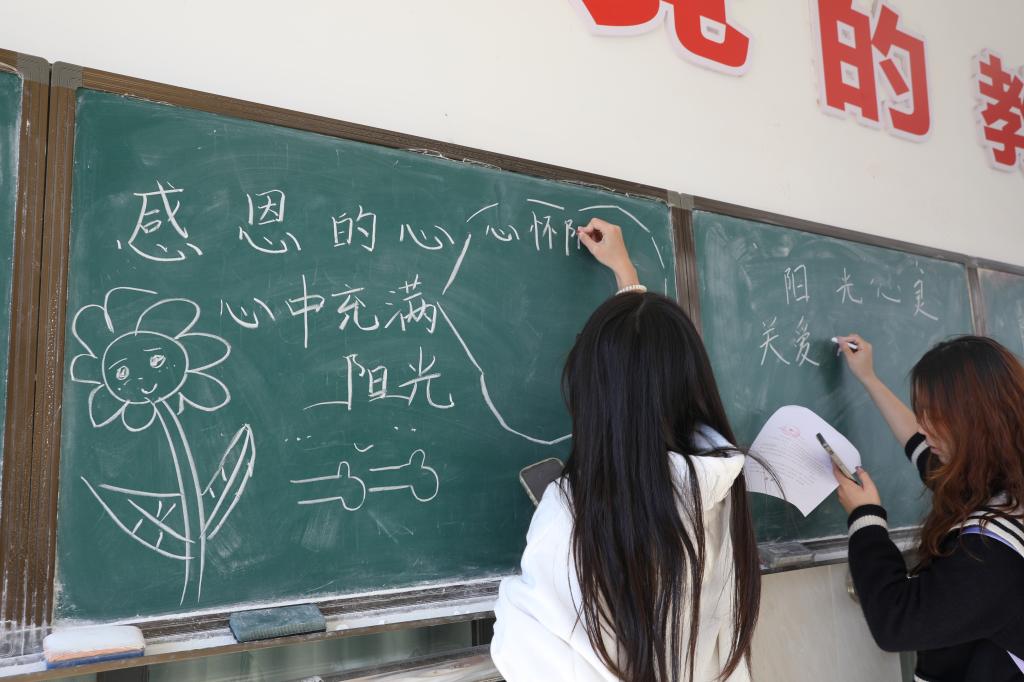 的 教
感恩的心
心中充满
阳光
心怀
阳光心灵
关爱